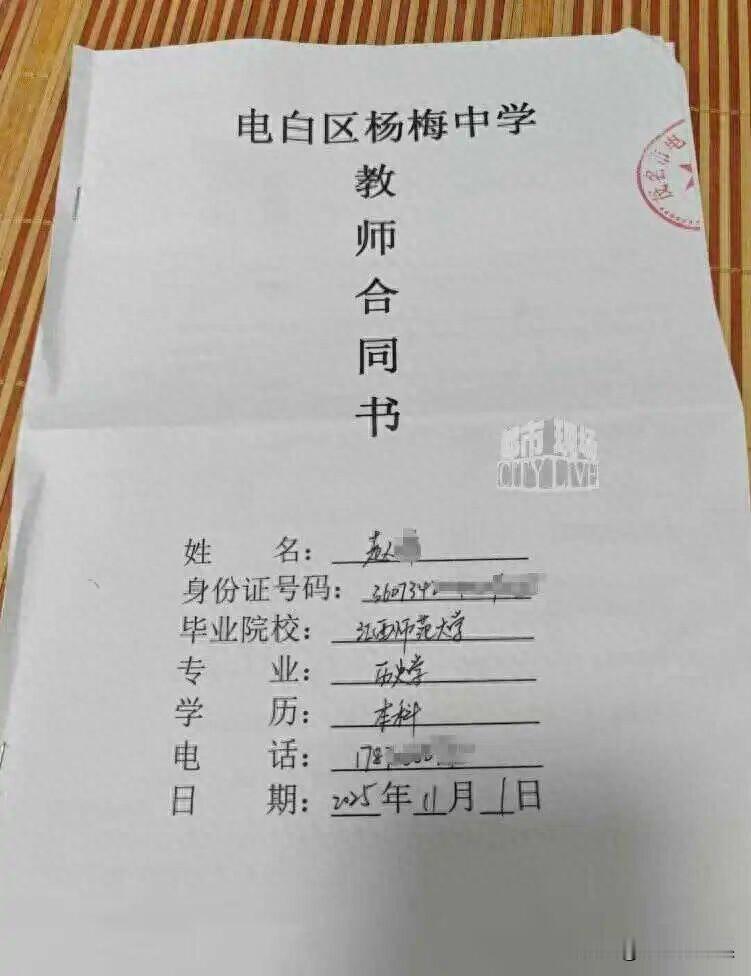 电白区杨梅中学
教
师
合
同
书
茂名市电
都市现场
CITY LIVE
姓 名：赵
身份证号码：360734
毕业院校：江西师范大学
专 业：历史学
学 历：本科
电 话：178
日 期：2025年11月1日